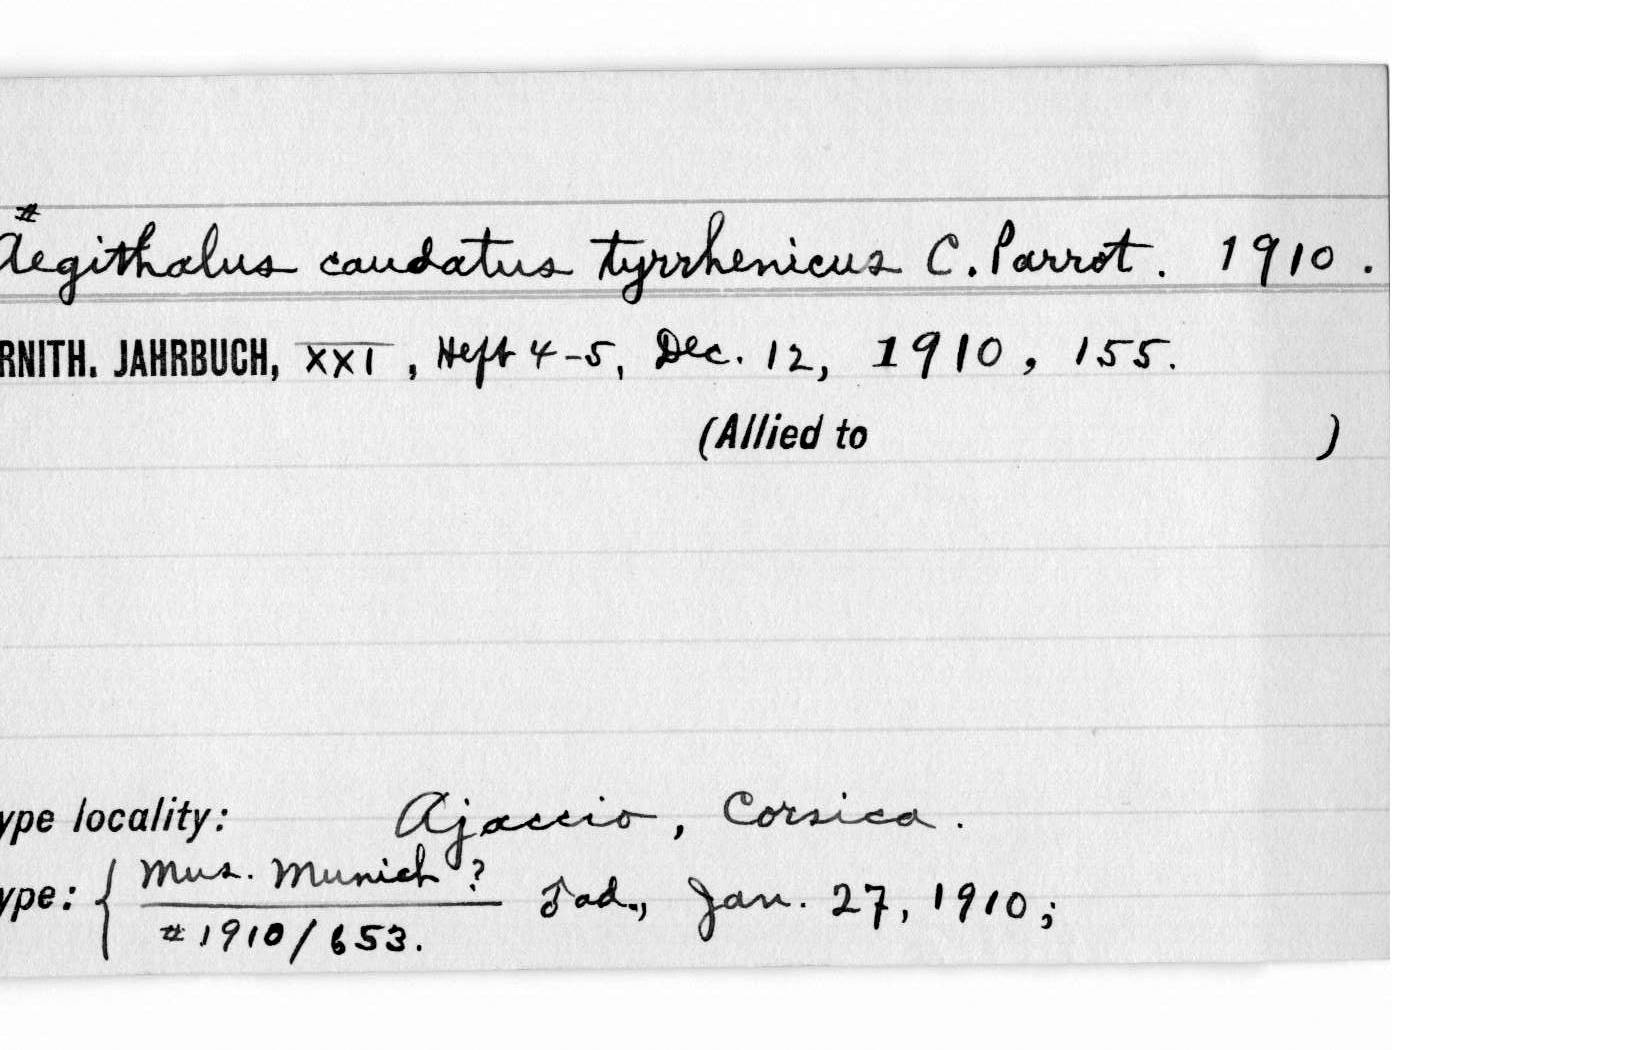 #
Aegithalus caudatus tyrrhenicus C. Parrot. 1910.
RNITH. JAHRBUCH, XXI, Heft 4-5, Dec. 12, 1910, 155.
(Allied to )
ype locality: Ajaccio, Corsica.
ype: { Mus. Munich ? ♂ad., Jan. 27, 1910;
#1910/653.